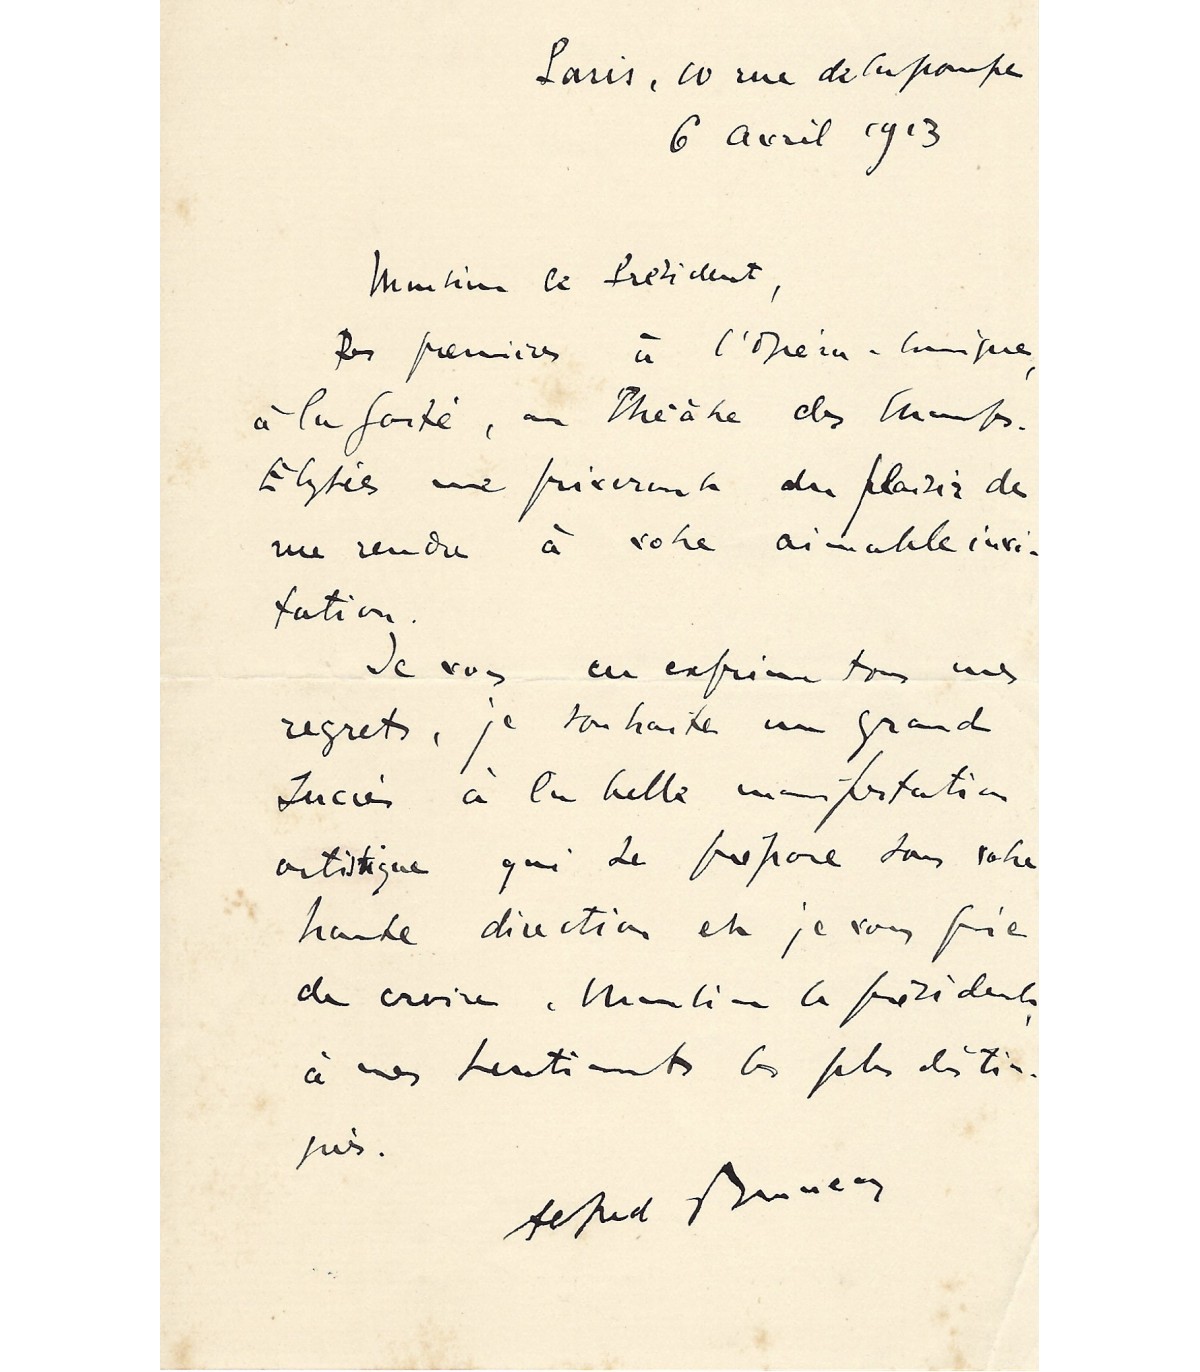 Paris, 10 rue de la pompe
6 avril 1913
Monsieur le Président,
Des premières à l'Opéra-Comique,
à la Gaîté, au Théâtre des Champs-
Elysées me priveront du plaisir de
me rendre à votre aimable invi-
tation.
Je vous en exprime tous mes
regrets, je souhaite un grand
succès à la belle manifestation
artistique qui se prépare sous votre
haute direction et je vous prie
de croire, Monsieur le président,
à mes sentiments les plus distin-
gués.
Alfred Bruneau